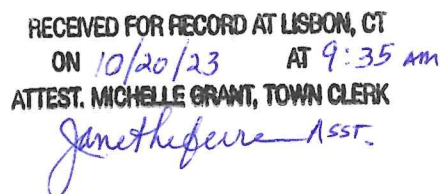 RECEIVED FOR RECORD AT LISBON, CT
ON 10/20/23 AT 9:35 AM
ATTEST. MICHELLE GRANT, TOWN CLERK
ASST.